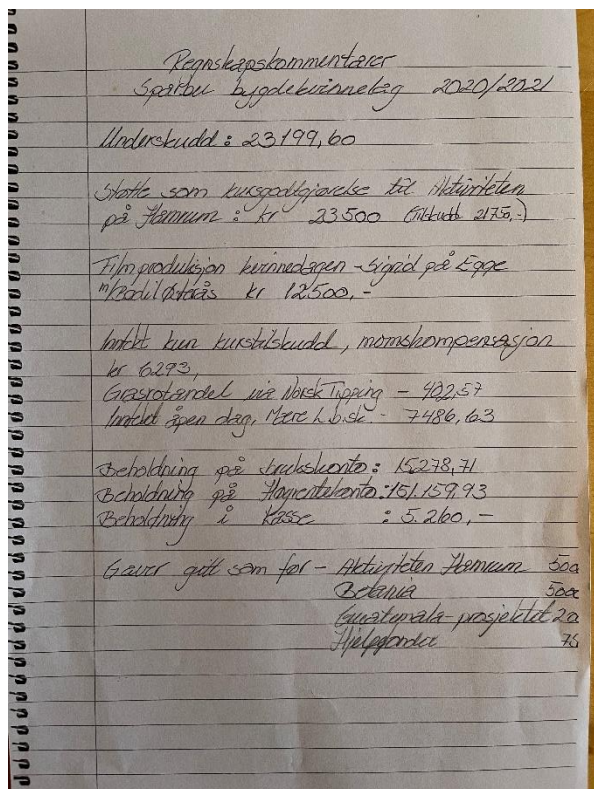 Regnskapskommentarer
Sparbu bygdekvinnelag 2020/2021
Underskudd: 23199,60
Støtte som kursgodtgjørelse til Aktiviteten
på Hamrum: kr 23500 (tilskudd 21750,-)
Filmproduksjon kvinnedagen - Sigrid på Egge
m/Bodil Østrås kr 12500,-
Inntekt kun kurstilskudd, momskompensasjon
kr 6293,
Grasrotandel via Norsk Tipping - 402,57
Inntekt åpen dag, Mære L.b.sk - 7486,63
Beholdning på brukskonto: 15278,71
Beholdning på Høyrentekonto: 151.159.93
Beholdning i Kasse : 5.260,-
Gaver gitt som før - Aktiviteten Hamrum 500
Betania 500
Guatemala-prosjektet 20
Hjelpgonder 75